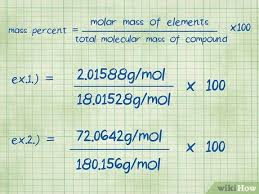 mass percent = molar mass of elements / total molecular mass of compound x100
ex.1.) 2.01588g/mol / 18.01528g/mol x 100
ex.2.) 72.0642g/mol / 180.156g/mol x 100
wikiHow